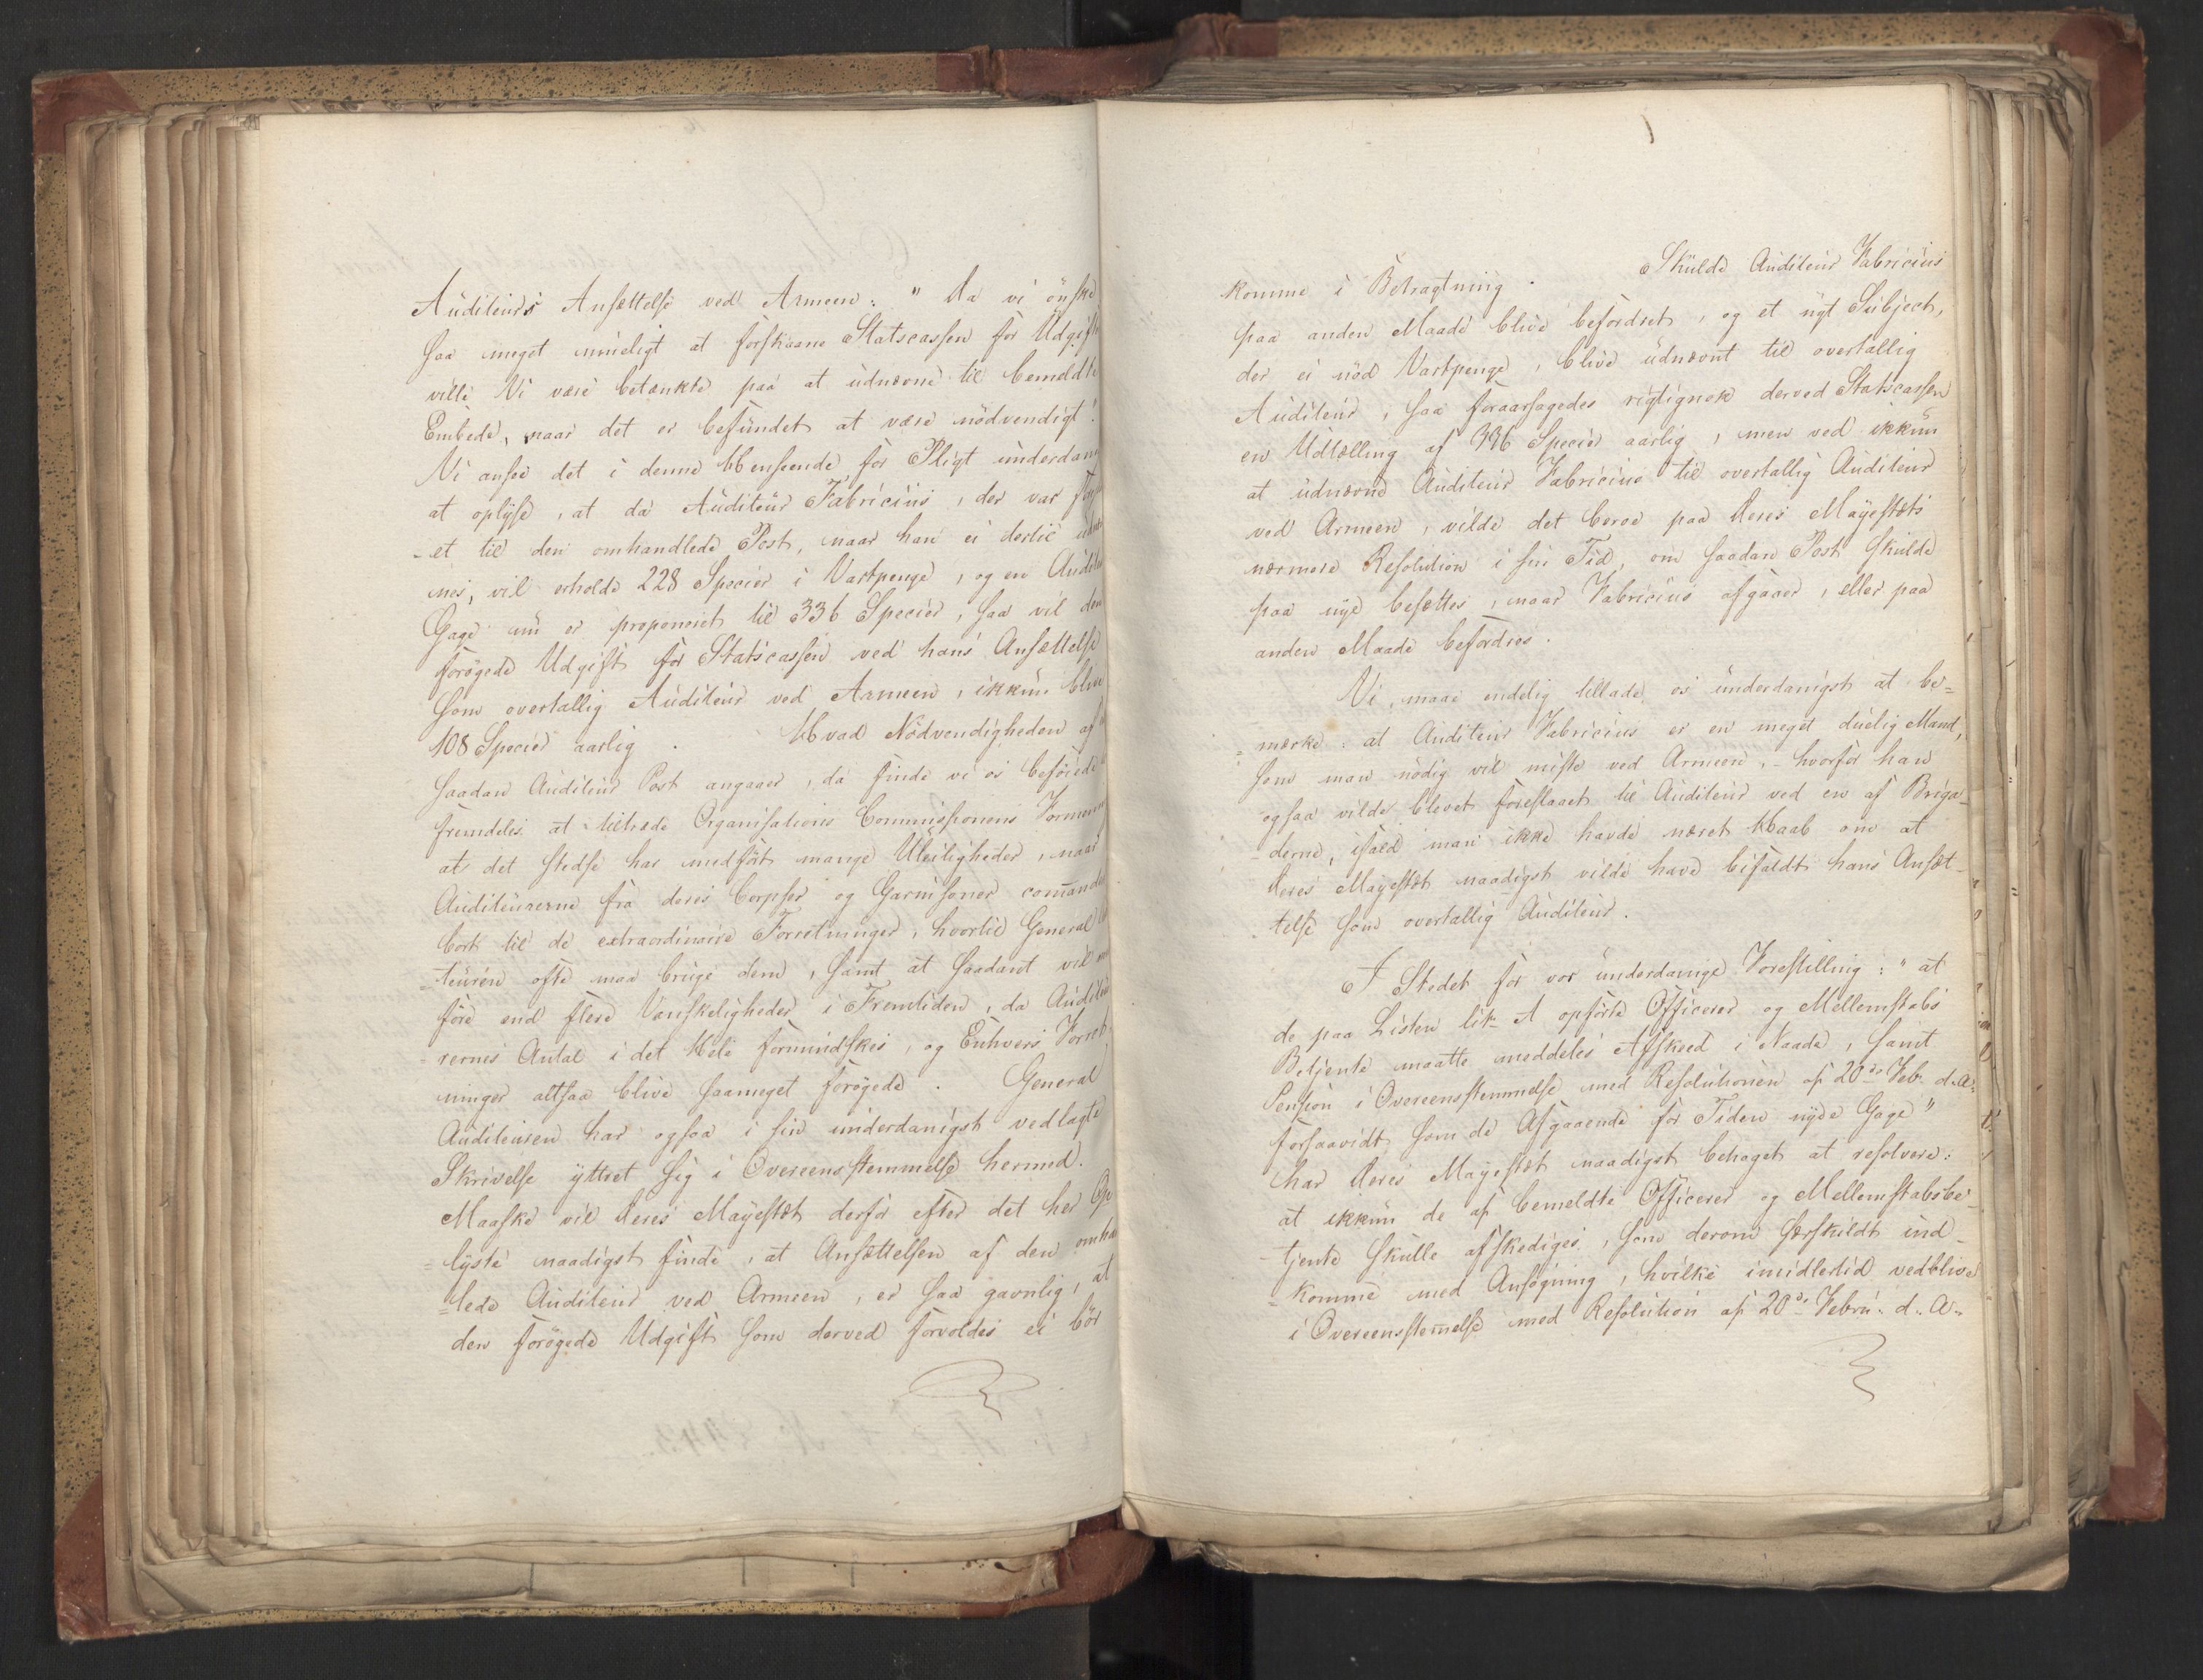 Auditeurs Ansættelse ved Armeen: " Da vi ønske
saa meget mueligt at forskaane Statscassen for Udgift
ville Vi være betænkte paa at udnævne til bemeldte
Embede, naar det er befundet at være nødvendigt".
Vi ansee det i denne Henseende for Pligt underdan
at oplyse, at da Auditeur Fabricius, der var
-et til den omhandlede Post, naar han ei dertil
nes, vil erholde 228 Specier i Vartpenge, og en
Gage nu er proponeret til 336 Specier, saa vil den
forøgede Udgift for Statscassen ved hans Ansættelse
som overtallig Auditeur ved Armeen, ikkun blive
108 Specier aarlig. Hvad Nødvendigheden af
saadan Auditeur Post angaaer, da finde vi os beføiede
fremdeles at tiltræde Organisations Commissionens
at det stedse har medført mange Uleiligheder, naar
Auditeurerne fra deres Corpser og Garnisoner com̅ande
bort til de extraordinaire Forretninger, hvortil General
=teuren ofte maa bruge dem, samt at saadant vil
føre end flere Vanskeligheder i Fremtiden, da
=rernes Antal i det Hele formindskes, og Enhvers Forret
ninger altsaa blive saameget forøgede. General
Auditeuren har ogsaa i sin underdanigst vedlagte
Skrivelse yttret sig i Overeensstemmelse hermed.
Maaske vil Deres Mayestæt derfor efter det her Op
=lyste naadigst finde, at Ansættelsen af den omhan
=lede Auditeur ved Armeen, er saa gavnlig, at
den forøgede Udgift som derved forvoldes ei bør
komme i Betragtning. Skulde Auditeur Fabricius
paa anden Maade blive befordret, og et nyt Subject,
der ei nød Vartpenge, blive udnævnt til overtallig
Auditeur, saa foraarsagedes rigtignok derved Statscassen
en Udtælling af 336 Specier aarlig, men ved ikkun
at udnævne Auditeur Fabricius til overtallig Auditeur
ved Armeen, vilde det beroe paa Deres Mayestæts
nærmere Resolution i sin Tid, om saadan Post skulde
paa nye besættes, naar Fabricius afgaaer, eller paa
anden Maade befordres.
Vi maae endelig tillade os underdanigst at be=
=mærke: at Auditeur Fabricius er en meget duelig Mand,
som man nødig vil miste ved Armeen, - hvorfor han
ogsaa vilde blevet foreslaaet til Auditeur ved en af Briga-
-derne, ifald man ikke havde næret Haab om at
Deres Mayestæt naadigst vilde have bifaldt hans Ansæt-
-telse som overtallig Auditeur.
I Stedet for vor underdanige Forestilling: " at
de paa Listen litr A opførte Officerer og Mellemstabs
Betjente maatte meddeles Afskeed i Naade, samt
Pension i Overeensstemmelse med Resolutionen af 20de Feb. d. A.
forsaavidt som de Afgaaende for Tiden nyde Gage"
har Deres Mayestæt naadigst behaget at resolvere:
at ikkun de af bemeldte Officerer og Mellemstabsbe-
-tjente skulle afskediges, som derom særskildt ind-
=komme med Ansøgning, hvilke imidlertid vedblive
i Overeensstem̅else med Resolution af 20de Febru. d. A.